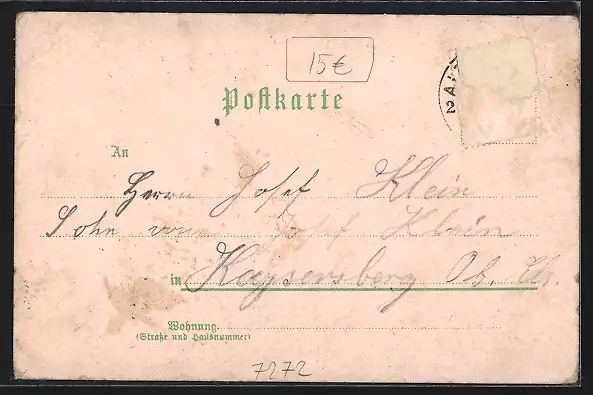 15€
Postkarte
An
Herrn Josef Klein
Sohn von Josef Klein
in Kaysersberg Ob. Els.
Wohnung
(Straße und Hausnummer)
7272